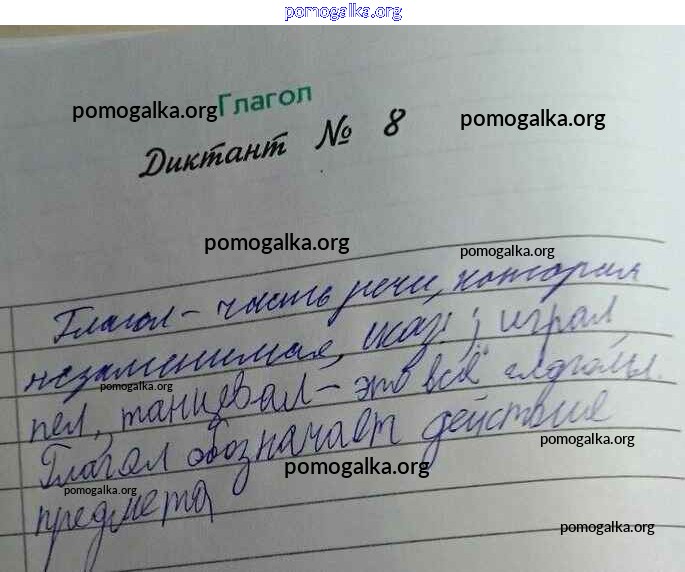 pomogalka.org
pomogalka.org Глагол
Диктант № 8
pomogalka.org
pomogalka.org
pomogalka.org
Глагол – часть речи, которая
незаменимая, ; играл,
pomogalka.org
пел, танцевал – это всё глаголы.
Глагол обозначает действие
pomogalka.org
pomogalka.org
предмета
pomogalka.org